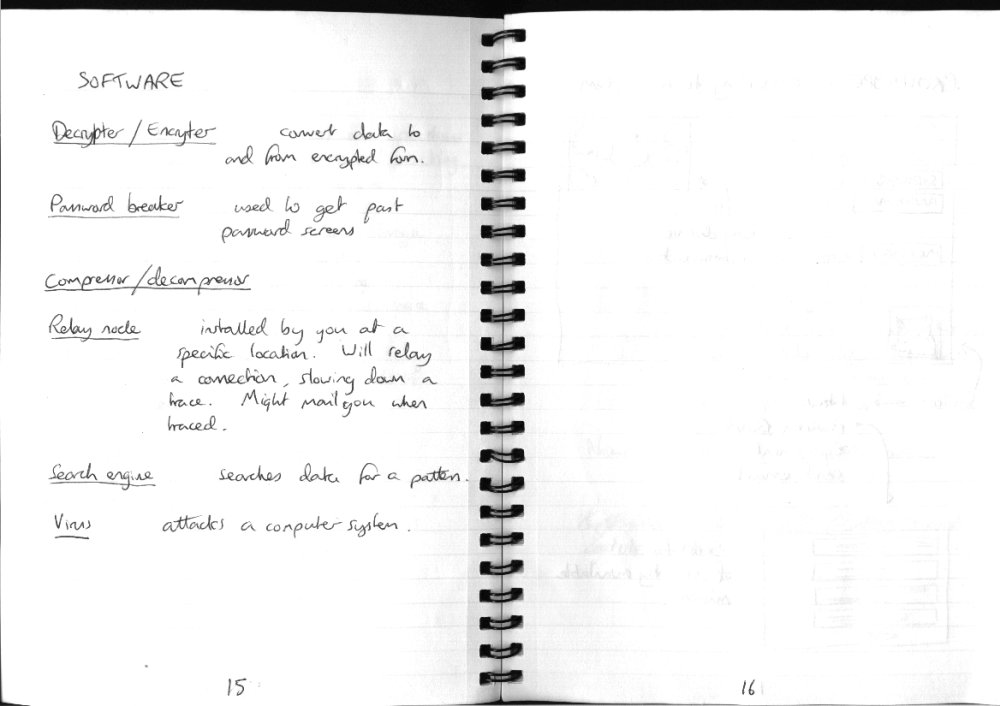 SOFTWARE
Decrypter / Encryter convert data to
and from encrypted form.
Password breaker used to get past
password screens
Compressor / decompressor
Relay node installed by you at a
specific location. Will relay
a connection, slowing down a
trace. Might mail you when
traced.
Search engine searches data for a pattern.
Virus attacks a computer system.
15
16